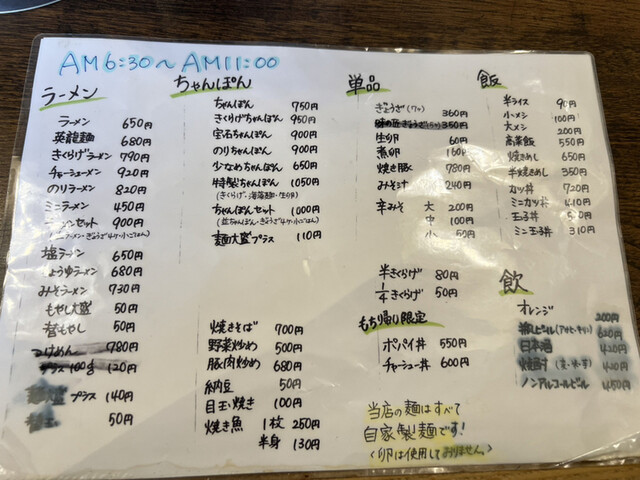 AM6:30～AM11:00
ラーメン
ラーメン 650円
英龍麺 680円
きくらげラーメン 790円
チャーシューメン 920円
のりラーメン 820円
ミニラーメン 450円
ラーメンセット 900円
塩ラーメン 650円
しょうゆラーメン 680円
みそラーメン 730円
もやし大盛 50円
替もやし 50円
つけめん 780円
プラス100g 120円
プラス 140円
50円
ちゃんぽん
ちゃんぽん 750円
きくらげちゃんぽん 950円
宝石ちゃんぽん 900円
のりちゃんぽん 900円
少なめちゃんぽん 650円
特製ちゃんぽん 1050円
(きくらげ・海藻麺・生卵)
ちゃんぽんセット 1000円
(並ちゃんぽん・ぎょうざ4ケ・小ごはん)
麺大盛プラス 110円
焼きそば 700円
野菜炒め 500円
豚肉炒め 680円
納豆 50円
目玉焼き 100円
焼き魚 1枚 250円
半身 130円
単品
ぎょうざ(7ケ) 360円
350円
生卵 60円
煮卵 160円
焼き豚 780円
みそ汁 240円
辛みそ 大 200円
中 100円
小 50円
半きくらげ 80円
1/4きくらげ 50円
もち帰り限定
ポパイ丼 550円
チャーシュー丼 600円
当店の麺はすべて
自家製麺です!
(卵は使用しておりません。)
飯
半ライス 90円
小メシ 100円
大メシ 200円
高菜飯 550円
焼きめし 650円
半焼きめし 350円
カツ丼 720円
ミニカツ丼 410円
玉子丼
ミニ玉子丼 310円
飲
オレンジ 200円
620円
日本酒 420円
420円
ノンアルコールビール 450円